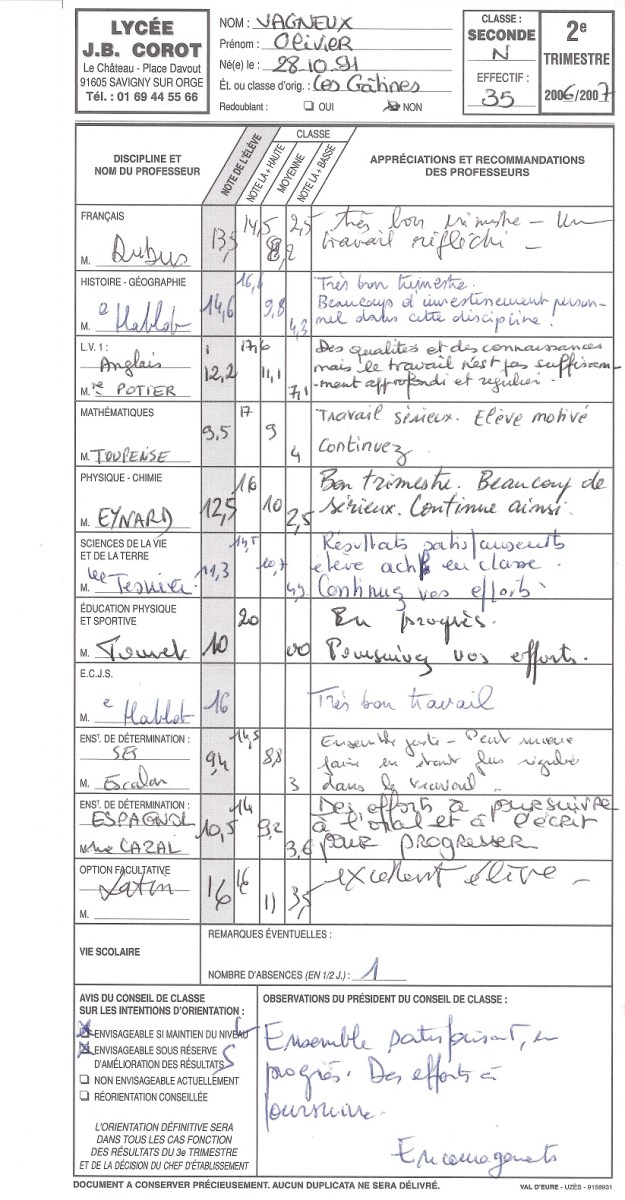 LYCÉE
J.B. COROT
Le Château - Place Davout
91605 SAVIGNY SUR ORGE
Tél. : 01 69 44 55 66
NOM : VAGNEUX
Prénom : Olivier
Né(e) le : 28.10.91
Ét. ou classe d'orig. : Les Gâtines
Redoublant : OUI NON
CLASSE :
SECONDE
N
EFFECTIF :
35
2e
TRIMESTRE
2006/2007
DISCIPLINE ET
NOM DU PROFESSEUR
NOTE DE L'ÉLÈVE
CLASSE
NOTE LA + HAUTE
MOYENNE
NOTE LA + BASSE
APPRÉCIATIONS ET RECOMMANDATIONS
DES PROFESSEURS
FRANÇAIS
M. Dubus
13,5 14,5 8,2 2,5
très bon trimestre - Un
travail réfléchi -
HISTOIRE - GÉOGRAPHIE
M.
14,6 16,6 9,8 4,3
Très bon trimestre.
Beaucoup d'investissement person-
nel dans cette discipline.
L.V. 1 :
Anglais
M.lle POTIER
12,2 17,6 11,1 7,1
Des qualités et des connaissances
mais le travail n'est pas suffisam-
-ment approfondi et régulier.
MATHÉMATIQUES
M. TOUPENSE
9,5 17 9 4
Travail sérieux. Elève motivé
Continuez
PHYSIQUE - CHIMIE
M. EYNARD
12,5 16 10 2,5
Bon trimestre. Beaucoup de
sérieux. Continue ainsi.
SCIENCES DE LA VIE
ET DE LA TERRE
M.
11,3 14,5
Résultats satisfaisants
élève actif en classe.
Continuez vos efforts
ÉDUCATION PHYSIQUE
ET SPORTIVE
M.
10 20 00
En progrès.
Poursuivez vos efforts.
E.C.J.S.
M.
16
Très bon travail
ENST. DE DÉTERMINATION :
SES
M. Escalon
9,4 14,5 8,8 3
Ensemble juste - Peut mieux
faire en étant plus régulier
dans le travail.
ENST. DE DÉTERMINATION :
ESPAGNOL
Mme CAZAL
10,5 14 9,2 3,6
Des efforts à poursuivre
à l'oral et à l'écrit
pour progresser
OPTION FACULTATIVE
Latin
M.
16 16 11 3,5
excellent élève -
VIE SCOLAIRE
REMARQUES ÉVENTUELLES :
NOMBRE D'ABSENCES (EN 1/2 J.) : 1
AVIS DU CONSEIL DE CLASSE
SUR LES INTENTIONS D'ORIENTATION :
ENVISAGEABLE SI MAINTIEN DU NIVEAU L
ENVISAGEABLE SOUS RÉSERVE
D'AMÉLIORATION DES RÉSULTATS S
NON ENVISAGEABLE ACTUELLEMENT
RÉORIENTATION CONSEILLÉE
L'ORIENTATION DÉFINITIVE SERA
DANS TOUS LES CAS FONCTION
DES RÉSULTATS DU 3e TRIMESTRE
ET DE LA DÉCISION DU CHEF D'ÉTABLISSEMENT
OBSERVATIONS DU PRÉSIDENT DU CONSEIL DE CLASSE :
Ensemble satisfaisant, en
progrès. Des efforts à
poursuivre.
Encouragements
DOCUMENT A CONSERVER PRÉCIEUSEMENT. AUCUN DUPLICATA NE SERA DÉLIVRÉ.
VAL D'EURE - UZÈS - 9158931